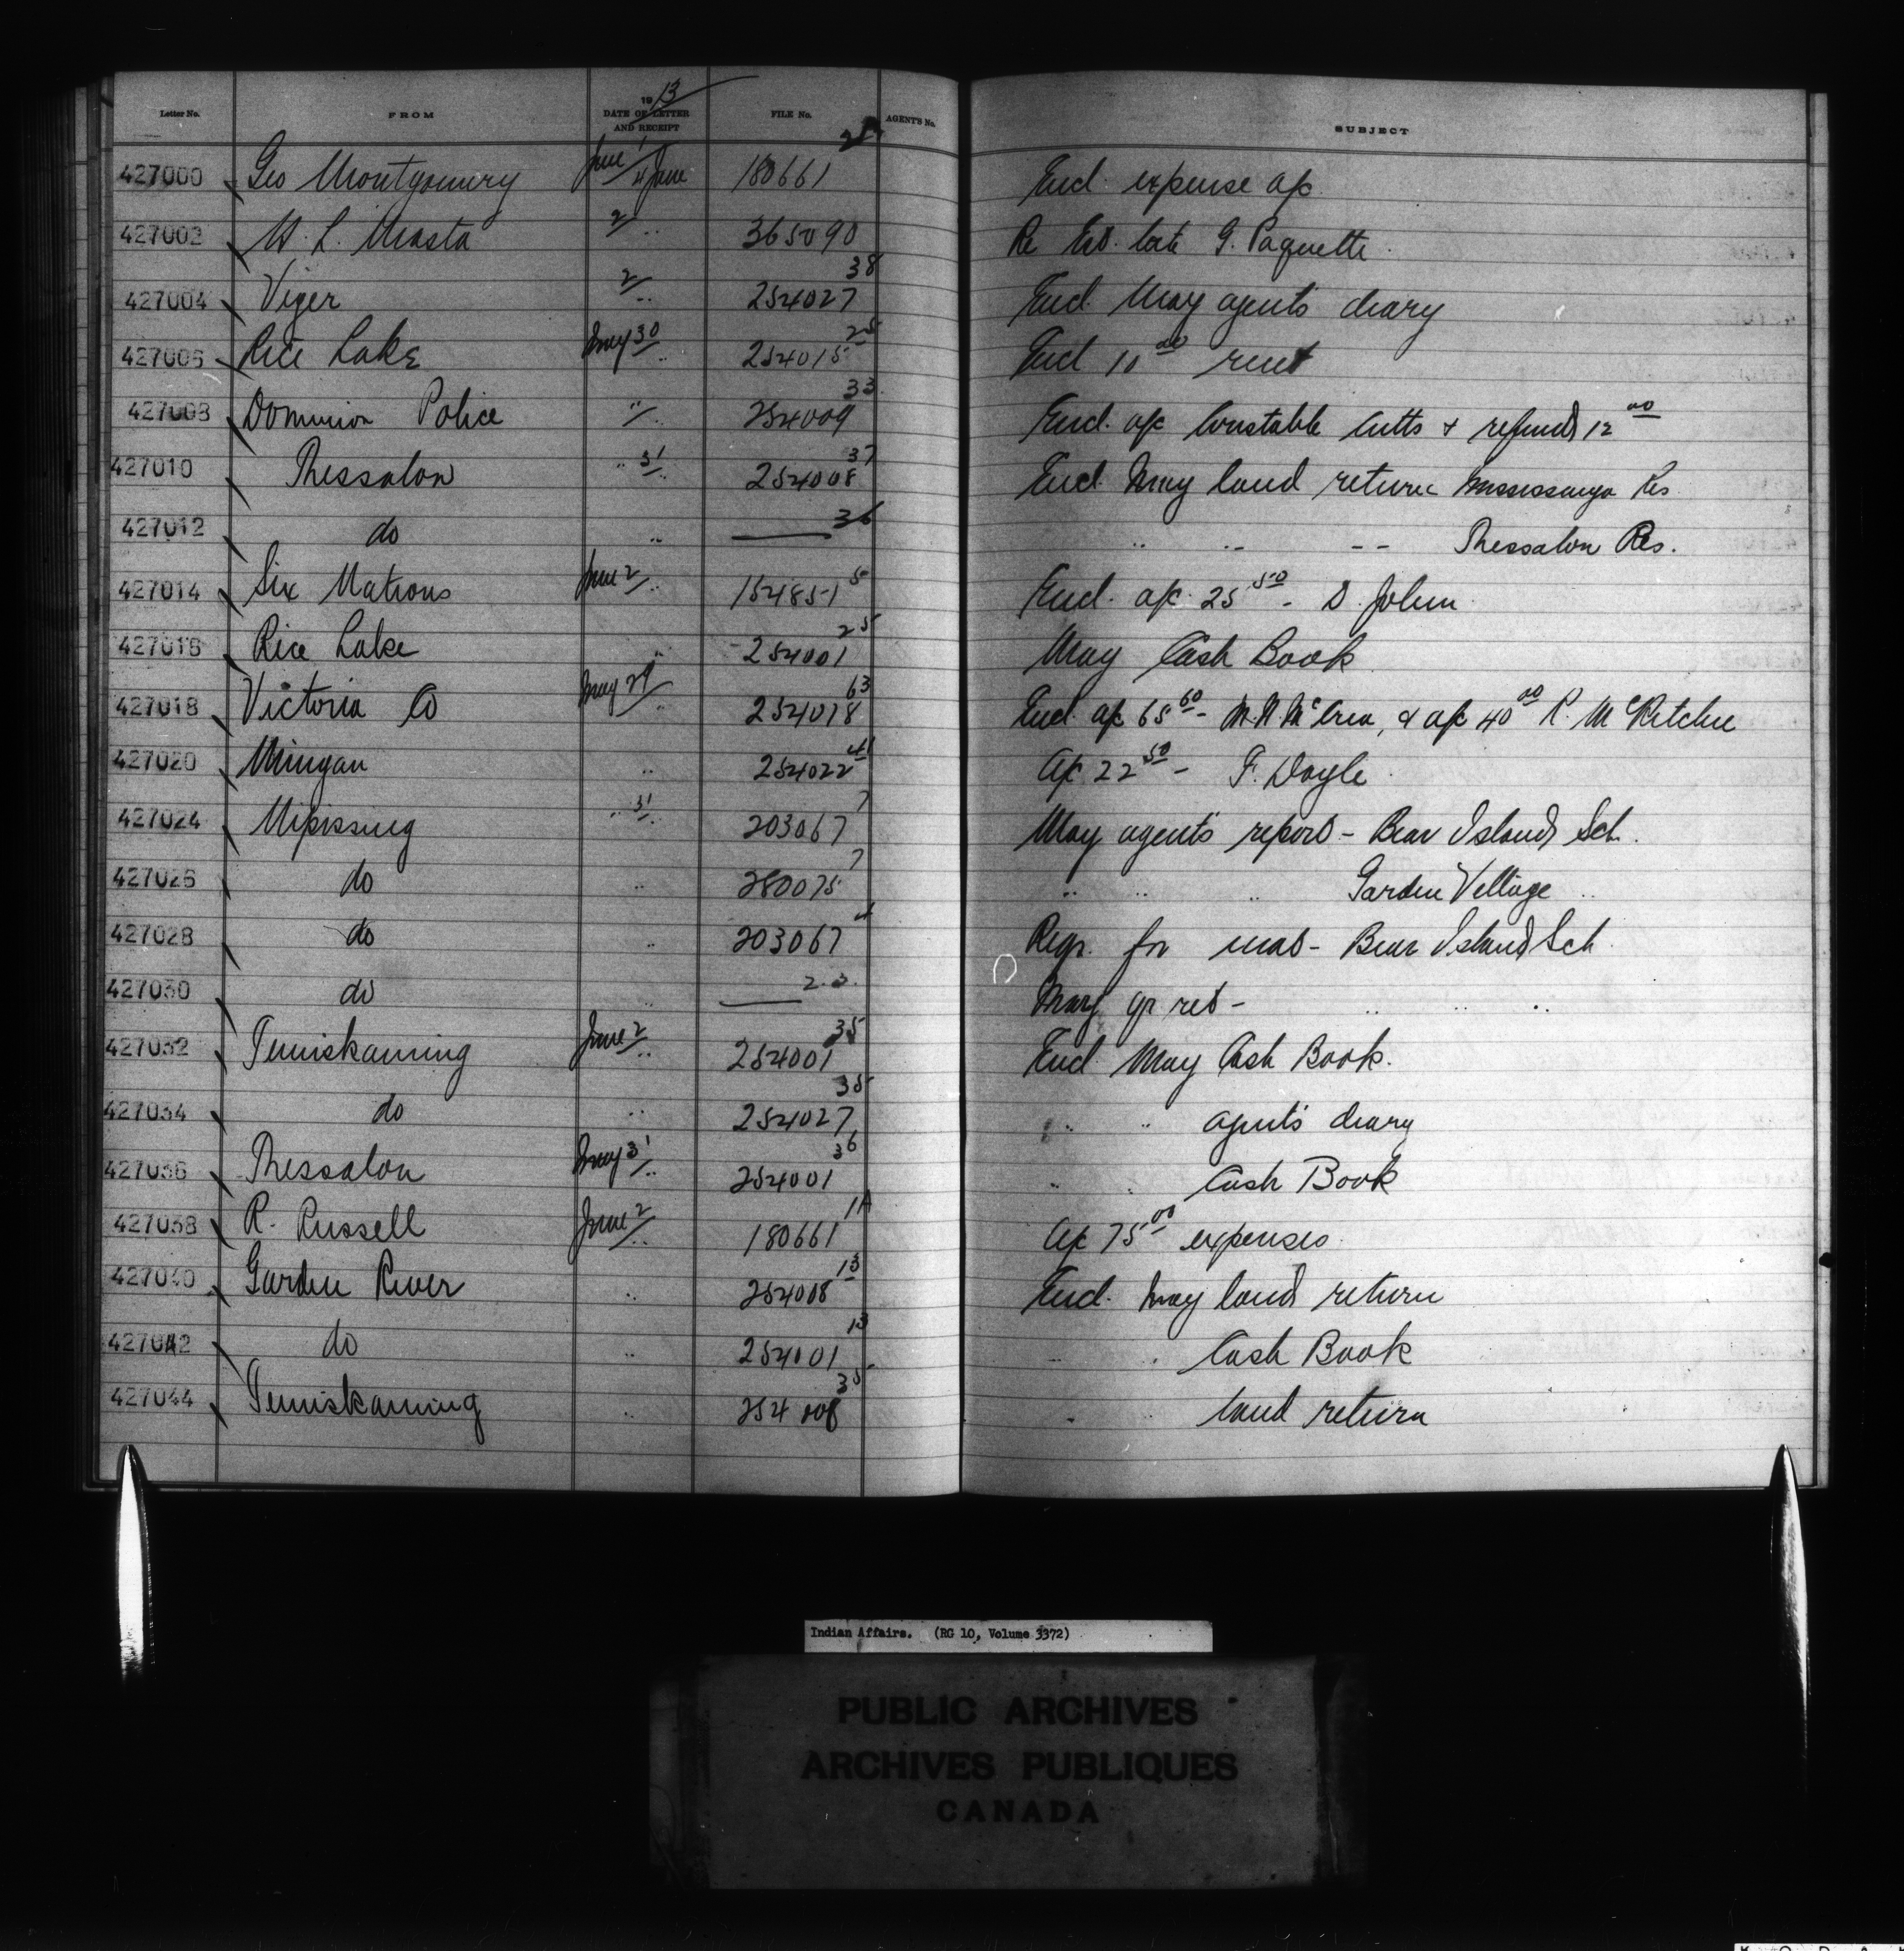 Letter No. FROM 1913 DATE OF LETTER AND RECEIPT FILE No. AGENT'S No. SUBJECT
427000 Geo Montgomery June 1 4 June 180661 Encl. expense a/c
427002 2 " 365090 Re Est. late G. Paquette
427004 Viger 2 " 254027 38 Encl. May agents diary
427006 Rice Lake May 30 " 254015 25 Encl 10 00 rent
427008 Dominion Police " 254009 33 Encl. a/c Constable Cutts & refunds 12 00
427010 Thessalon " 31 " 254008 37 Encl. May land return Mississauga Res
427012 do " — 36 " " " Thessalon Res.
427014 Six Nations June 2 " 154851 5 Encl. a/c 25 50 - D. John
427016 Rice Lake " 254001 25 May Cash Book
427018 Victoria Co May 29 " 254018 63 Encl. a/c 65 60 - McCrea, & a/c 40 00 R. McRitchie
427020 Mingan " 254022 41 a/c 22 50 - F. Doyle
427024 Nipissing " 31 " 203067 7 May agents report - Bear Island Sch.
427026 do " 280075 7 " " " Garden Village "
427028 do " 203067 4 Reqn. for mat - Bear Island Sch
427030 do " — 2.3. May qr ret - " " "
427032 Temiskaming June 2 " 254001 35 Encl May Cash Book.
427034 do " 254027 35 " " agents diary
427036 Thessalon May 31 " 254001 36 " " Cash Book
427038 R. Russell June 2 " 180661 1A a/c 75 00 expenses
427040 Garden River " 254008 13 Encl. May land return
427042 do " 254001 13 " " Cash Book
427044 Temiskaming " 254008 35 " " land return
Indian Affairs. (RG 10, Volume 3372)
PUBLIC ARCHIVES
ARCHIVES PUBLIQUES
CANADA